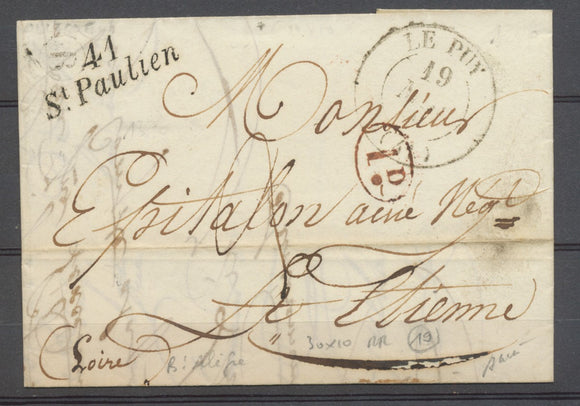 41
St. Paulien
LE PUY
19
1D
Monsieur
Epitalon ainé Negt
St Etienne
Loire
B: Allègre
30x10 RR 19